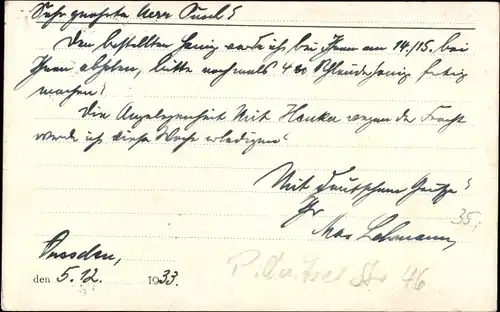 Sehr geehrter Herr Pusch!
Den bestellten Honig werde ich bei Ihnen am 14./15. bei
Ihnen abholen, bitte nochmals 420 Schleuderhonig fertig
machen!
Die Angelegenheit mit Hanka wegen der Fracht
werde ich diese Woche erledigen.
Mit Deutschem Grusse!
Ihr
Max Lehmann,
35,-
Dresden,
den 5.12. 1933.
46